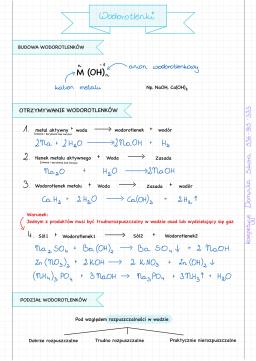 Wodorotlenki
BUDOWA WODOROTLENKÓW
M (OH)ₙ
anion wodorotlenkowy
kation metalu
Np. NaOH, Ca(OH)₂
OTRZYMYWANIE WODOROTLENKÓW
1. metal aktywny + woda → wodorotlenek + wodór
2Na + 2H₂O → 2NaOH + H₂
2. tlenek metalu aktywnego + Woda → Zasada
Na₂O + H₂O → 2NaOH
3. Wodorotlenek metalu + Woda → Zasada + wodór
CaH₂ + 2H₂O → Ca(OH)₂ + 2H₂↑
Warunek:
Jednym z produktów musi być trudnorozpuszczalny w wodzie osad lub wydzielający się gaz
4. Sól1 + Wodorotlenek1 → Sól2 + Wodorotlenek2
Na₂SO₄ + Ba(OH)₂ → BaSO₄↓ + 2NaOH
Zn(NO₃)₂ + 2KOH → 2KNO₃ + Zn(OH)₂↓
(NH₄)₃PO₄ + 3NaOH → Na₃PO₄ + 3NH₃↑ + H₂O
PODZIAŁ WODOROTLENKÓW
Pod względem rozpuszczalności w wodzie
Dobrze rozpuszczalne Trudno rozpuszczalne Praktycznie nierozpuszczalne